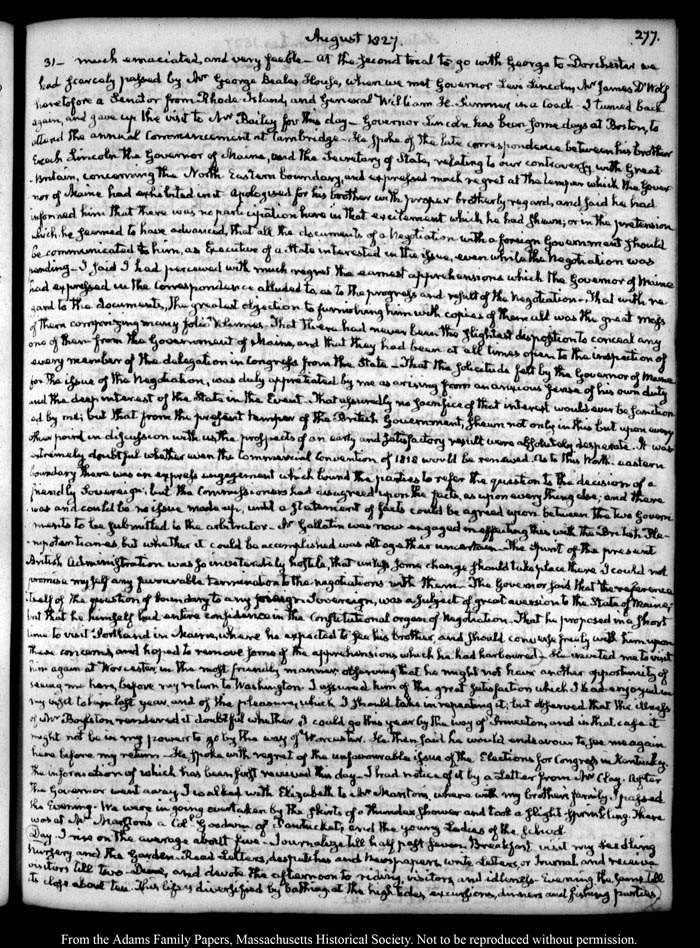 August 1827.
277.
31— much emaciated, and very feeble— At the second trial to go with George to Dorchester we
had scarcely passed by Mr George Beale's House, when we met Governor Levi Lincoln, Mr James D'Wolf
heretofore a Senator from Rhode Island, and General William H. Sumner, in a Coach— I turned back
again, and gave up the visit to Mr Bailey for this day— Governor Lincoln has been some days at Boston, to
attend the annual Commencement at Cambridge— He spoke of the late correspondence between his brother
Enoch Lincoln the Governor of Maine, and the Secretary of State, relating to our controversy with Great-
-Britain, concerning the North Eastern boundary, and expressed much regret at the temper which the Gover-
nor of Maine had exhibited in it. Apologised for his brother with proper brotherly regard, and said he had
informed him that there was no participation here in that excitement which he had shewn; or in the pretension
which he seemed to have advanced, that all the documents of a Negotiation with a foreign Government should
be communicated to him, as Executive of a State interested in the issue, even while the Negotiation was
pending— I said I had perceived with much regret the earnest apprehensions which the Governor of Maine
had expressed in the Correspondence alluded to, as to the progress and result of the Negotiation— That with re-
gard to the documents, the greatest objection to furnishing him with copies of them all was the great mass
of them comprizing many folio Volumes. That there had never been the slightest disposition to conceal any
one of them from the Government of Maine, and that they had been at all times open to the inspection of
every member of the delegation in Congress from the State— That the solicitude felt by the Governor of Maine
for the issue of the Negotiation, was duly appreciated by me as arising from an anxious sense of his own duty
and the deep interest of the State in the Event. That assuredly no sacrifice of that interest would ever be sanction-
ed by me; but that from the present temper of the British Government, shewn not only in this but upon every
other point in discussion with us, the prospects of an early and satisfactory result were absolutely desperate. It was
extremely doubtful whether even the Commercial Convention of 1818 would be renewed. As to this North-eastern
boundary there was an express engagement which bound the parties to refer the question to the decision of a
friendly Sovereign: but the Commissioners had disagreed upon the facts, as upon every thing else; and there
was and could be no issue made up, until a statement of facts could be agreed upon between the two Govern-
ments to be submitted to the arbitrator— Mr Gallatin was now engaged in effecting this with the British Ple-
nipotentiaries but whether it could be accomplished was altogether uncertain— The Spirit of the present
British Administration was so inveterately hostile that unless some change should take place there I could not
promise myself any favourable termination to the negotiations with them— The Governor said that the reference
itself of the question of boundary to any foreign Sovereign, was a subject of great aversion to the State of Maine;
but that he himself had entire confidence in the Constitutional organs of Negotiation. That he proposed in a short
time to visit Portland in Maine, where he expected to see his brother, and should converse freely with him upon
these concerns, and hoped to remove some of the apprehensions which he had harboured— He wanted me to visit
him again at Worcester, in the most friendly manner, observing that he might not have another opportunity of
seeing me here, before my return to Washington. I assured him of the great satisfaction which I had enjoyed in
my visit to him last year, and of the pleasure, which I should take in repeating it; but observed that the illness
of Mr Boylston rendered it doubtful whether I could go this year by the way of Princeton, and in that case it
might not be in my power to go by the way of Worcester. He then said he would endeavour to see me again
here before my return— He spoke with regret of the unfavourable issue of the Elections for Congress in Kentucky.
the information of which has been first received this day— I had notice of it by a Letter from Mr Clay. After
the Governor went away I walked with Elizabeth to Mr Marston's, where with my brother's family, I passed
the Evening. We were in going overtaken by the skirts of a thunder shower and took a slight sprinkling. There
was at Mr Marston's a Colonel Goodwin of Pawtucket, and the young Ladies of the School
Day. I rise on the average about five— Journalize till half past seven. Breakfast visit my Seedling
nursery and the Garden— Read Letters, despatches and Newspapers, write Letters, or Journal, and receive
visitors till two— Dine, and devote the afternoon to riding, visitors, and idleness— Evening the same till
its close about ten. This life is diversified by bathing at the high tides, excursions, dinners and fishing parties.
From the Adams Family Papers, Massachusetts Historical Society. Not to be reproduced without permission.